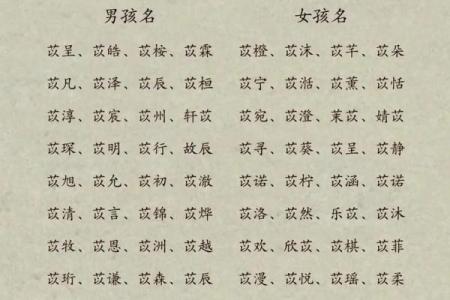 男孩名 女孩名
苡呈、苡皓、苡桉、苡霖 苡橙、苡沫、苡芊、苡朵
苡凡、苡泽、苡辰、苡桓 苡宁、苡湉、苡薰、苡恬
苡淳、苡宸、苡州、轩苡 苡宛、苡澄、茉苡、婧苡
苡琛、苡明、苡行、故辰 苡寻、苡葵、苡呈、苡静
苡旭、苡允、苡初、苡澈 苡诺、苡柠、苡涵、苡诺
苡清、苡言、苡锦、苡烨 苡洛、苡然、乐苡、苡沐
苡牧、苡恩、苡洲、苡越 苡欢、欣苡、苡棋、苡菲
苡珩、苡谦、苡森、苡辰 苡漫、苡悦、苡瑶、苡柔